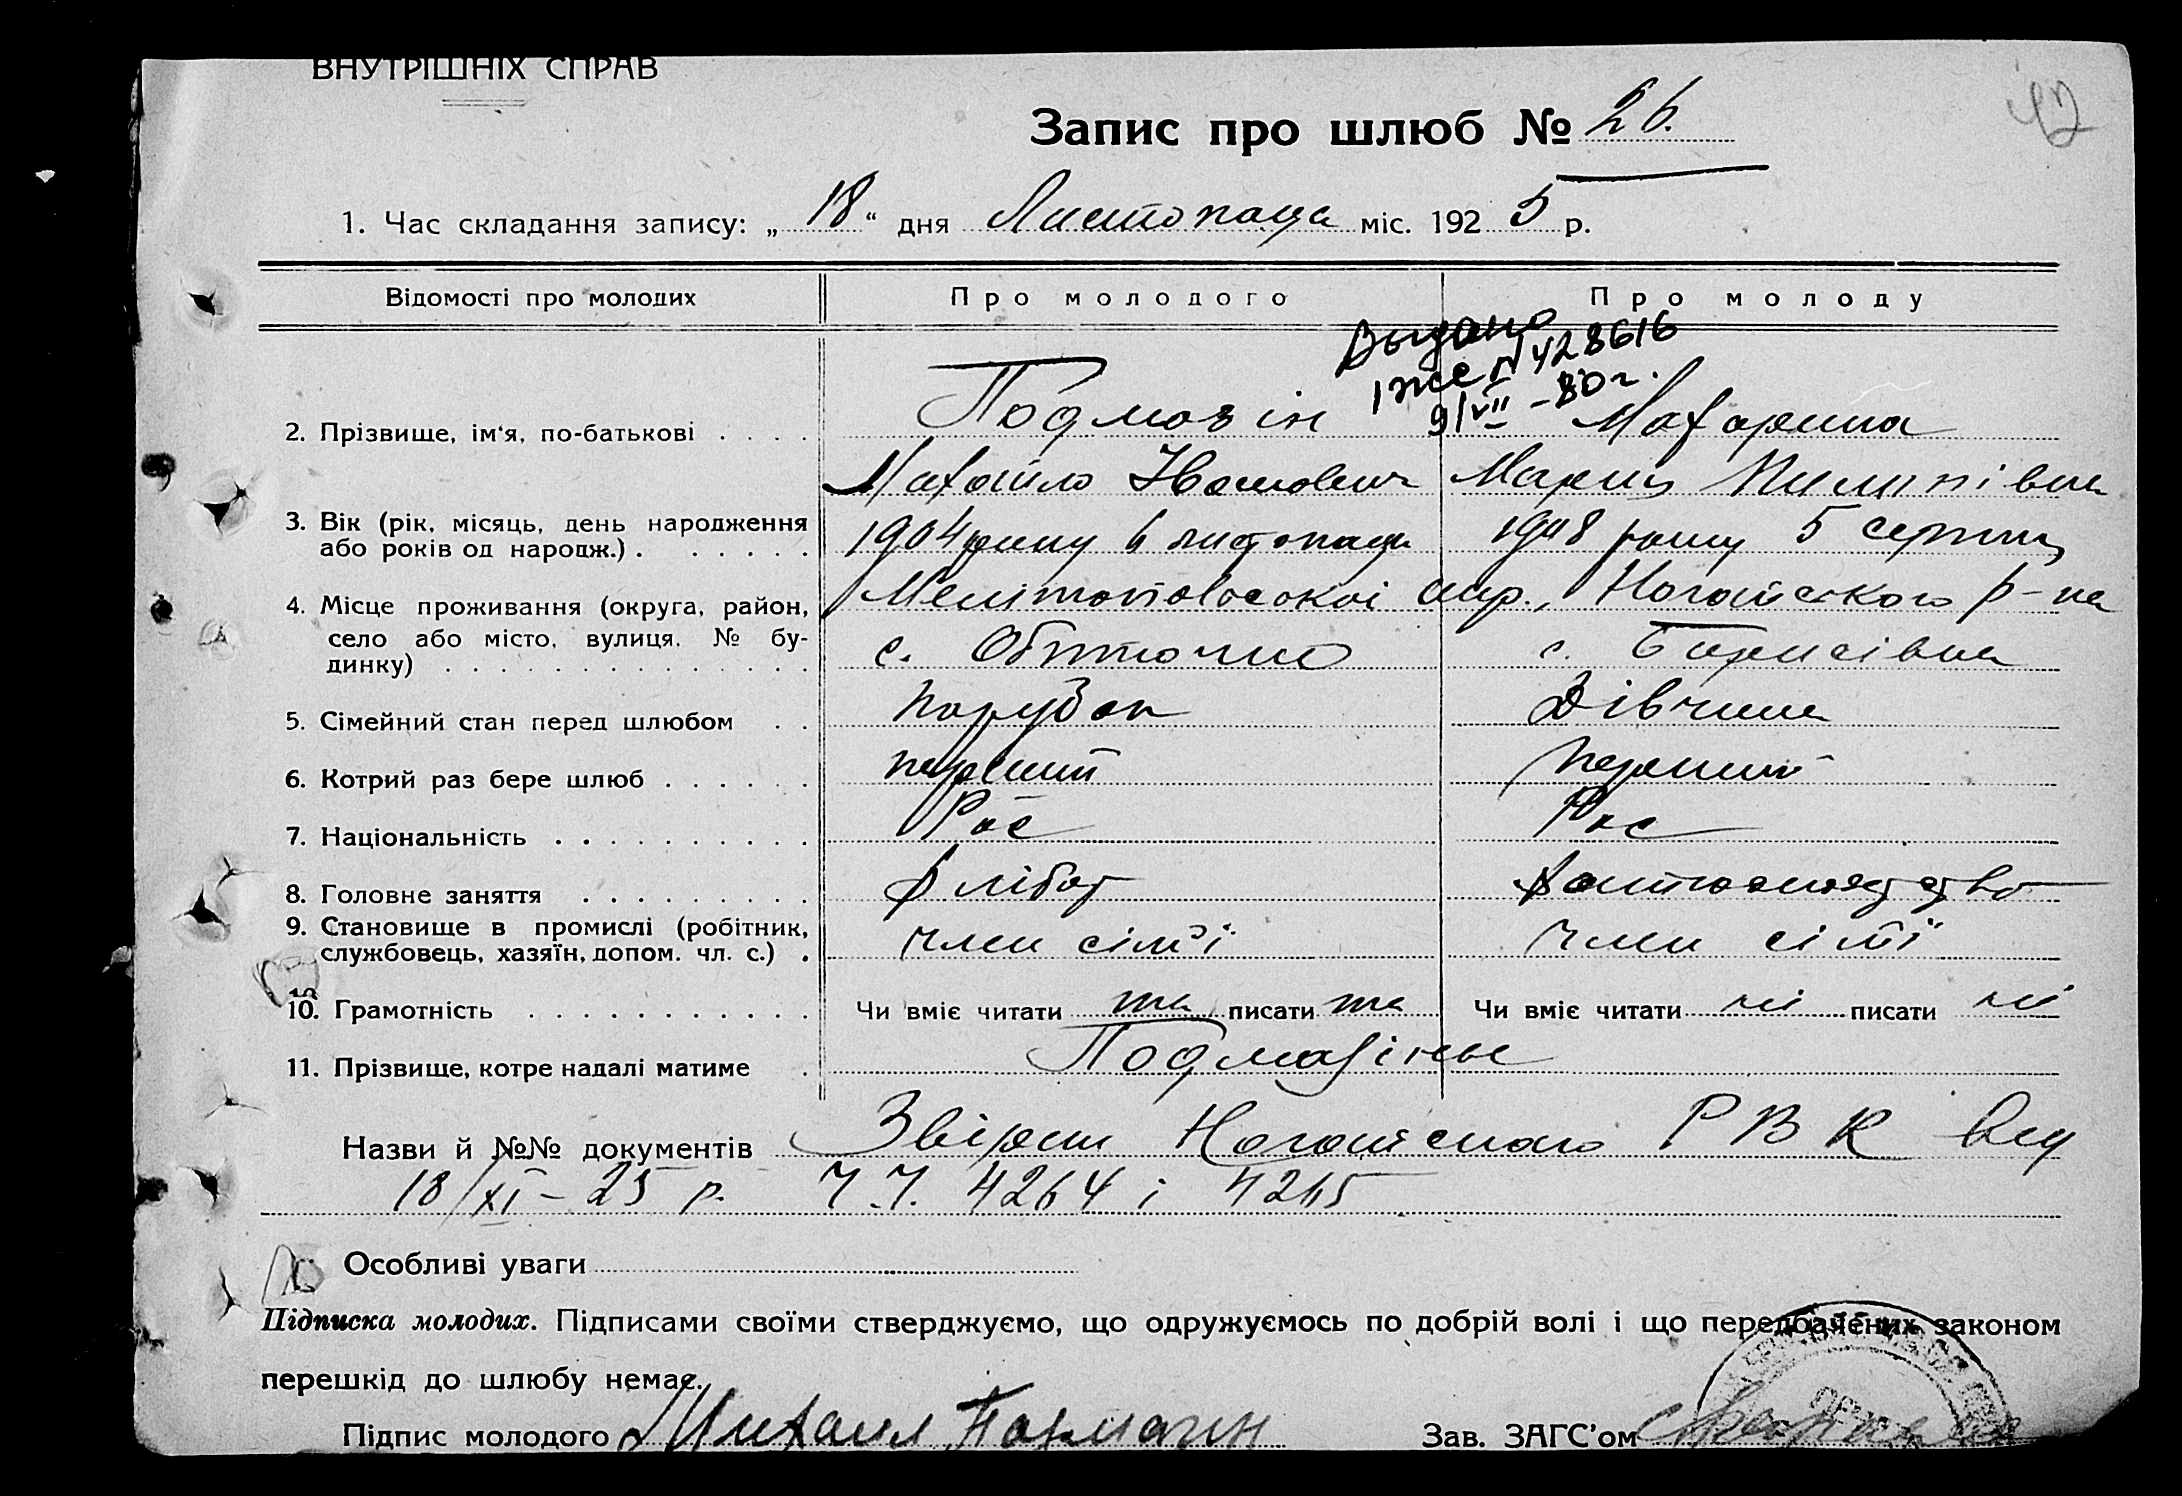 ВНУТРІШНІХ СПРАВ
Запис про шлюб № 26.
42
1. Час складання запису: „ 18 “ дня Листопада міс. 192 5 р.
Відомості про молодих Про молодого Про молоду
Выдано
9/VII – 80 г.
2. Прізвище, ім'я, по-батькові . . . . Подмазін
Михайло Іванович Мария Пилипівна
3. Вік (рік, місяць, день народження
або років од народж.) . . . . . . 1904 року 6 листопада 1908 року 5 серпня
4. Місце проживання (округа, район, Мелітопольської окр., Ногайського р-на
село або місто, вулиця, № бу-
динку) . . . . . . . . . . . . . . с. Обіточно с. Борисівна
5. Сімейний стан перед шлюбом . . Парубок Дівчина
6. Котрий раз бере шлюб . . . . . . перший Перший
7. Національність . . . . . . . . . . Рос Рос
8. Головне заняття . . . . . . . . . хлібор
9. Становище в промислі (робітник,
службовець, хазяїн, допом. чл. с.) . член сім'ї член сім'ї
10. Грамотність . . . . . . . . . . . . Чи вміє читати та писати та Чи вміє читати ні писати ні
11. Прізвище, котре надалі матиме . Подмазіны
Назви й №№ документів Ногайського РВК від
18/XI – 25 р. Ч.Ч. 4264 і 4265
Особливі уваги
Підписка молодих. Підписами своїми стверджуємо, що одружуємось по добрій волі і що передбачених законом
перешкід до шлюбу немає.
Підпис молодого Михаил Зав. ЗАГС'ом